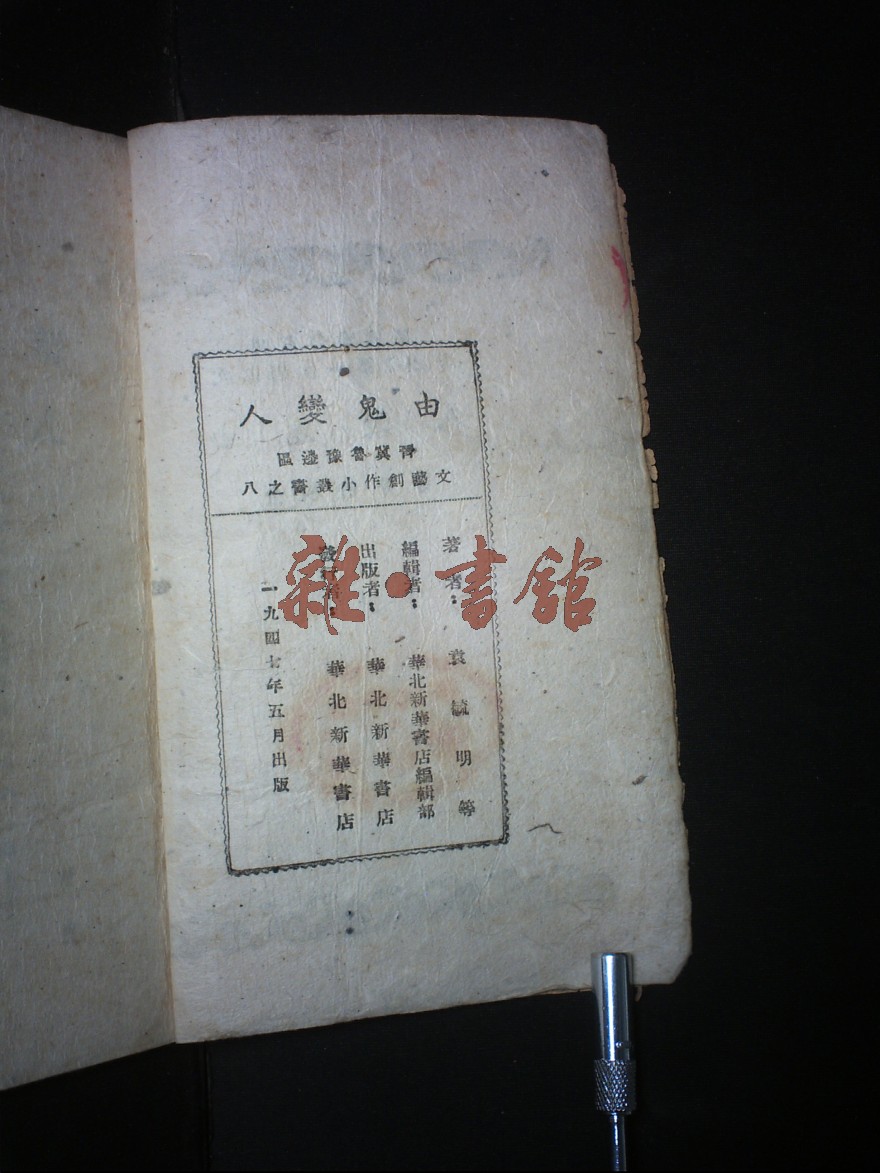 由鬼變人
晋冀魯豫邊區
文藝創作小叢書之八
著者：袁毓明等
編輯者：華北新華書店編輯部
出版者：華北新華書店
發行者：華北新華書店
一九四七年五月出版
雜·書館